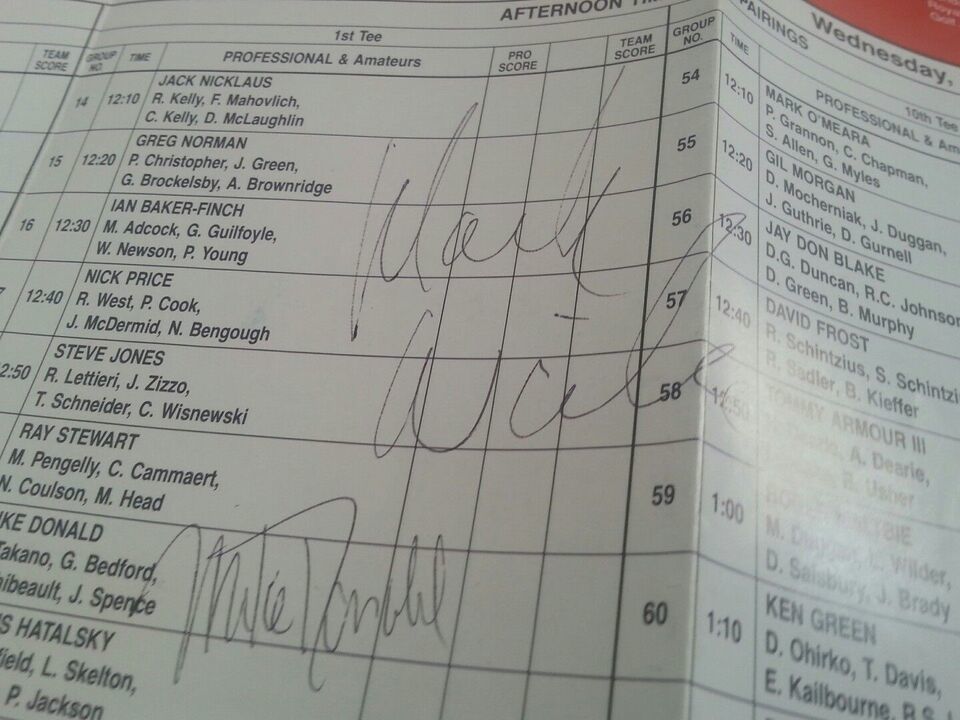 AFTERNOON
1st Tee
TEAM SCORE GROUP NO. TIME PROFESSIONAL & Amateurs PRO SCORE TEAM SCORE
14 12:10 JACK NICKLAUS
R. Kelly, F. Mahovlich,
C. Kelly, D. McLaughlin
15 12:20 GREG NORMAN
P. Christopher, J. Green,
G. Brockelsby, A. Brownridge
16 12:30 IAN BAKER-FINCH
M. Adcock, G. Guilfoyle,
W. Newson, P. Young
12:40 NICK PRICE
R. West, P. Cook,
J. McDermid, N. Bengough
12:50 STEVE JONES
R. Lettieri, J. Zizzo,
T. Schneider, C. Wisnewski
RAY STEWART
M. Pengelly, C. Cammaert,
N. Coulson, M. Head
MIKE DONALD
Takano, G. Bedford,
J. Spence
HATALSKY
L. Skelton,
P. Jackson
Mark
Mike Donald
PAIRINGS Wednesday,
10th Tee
GROUP NO. TIME PROFESSIONAL &
54 12:10 MARK O'MEARA
P. Grannon, C. Chapman,
S. Allen, G. Myles
55 12:20 GIL MORGAN
D. Mocherniak, J. Duggan,
J. Guthrie, D. Gurnell
56 12:30 JAY DON BLAKE
D.G. Duncan, R.C. Johnson
D. Green, B. Murphy
57 12:40 DAVID FROST
R. Schintzius, S. Schintzi
R. Sadler, B. Kieffer
58 12:50 TOMMY ARMOUR III
A. Dearie,
R. Usher
59 1:00
Wilder,
D. Salsbury, J. Brady
60 1:10 KEN GREEN
D. Ohirko, T. Davis,
E. Kailbourne,